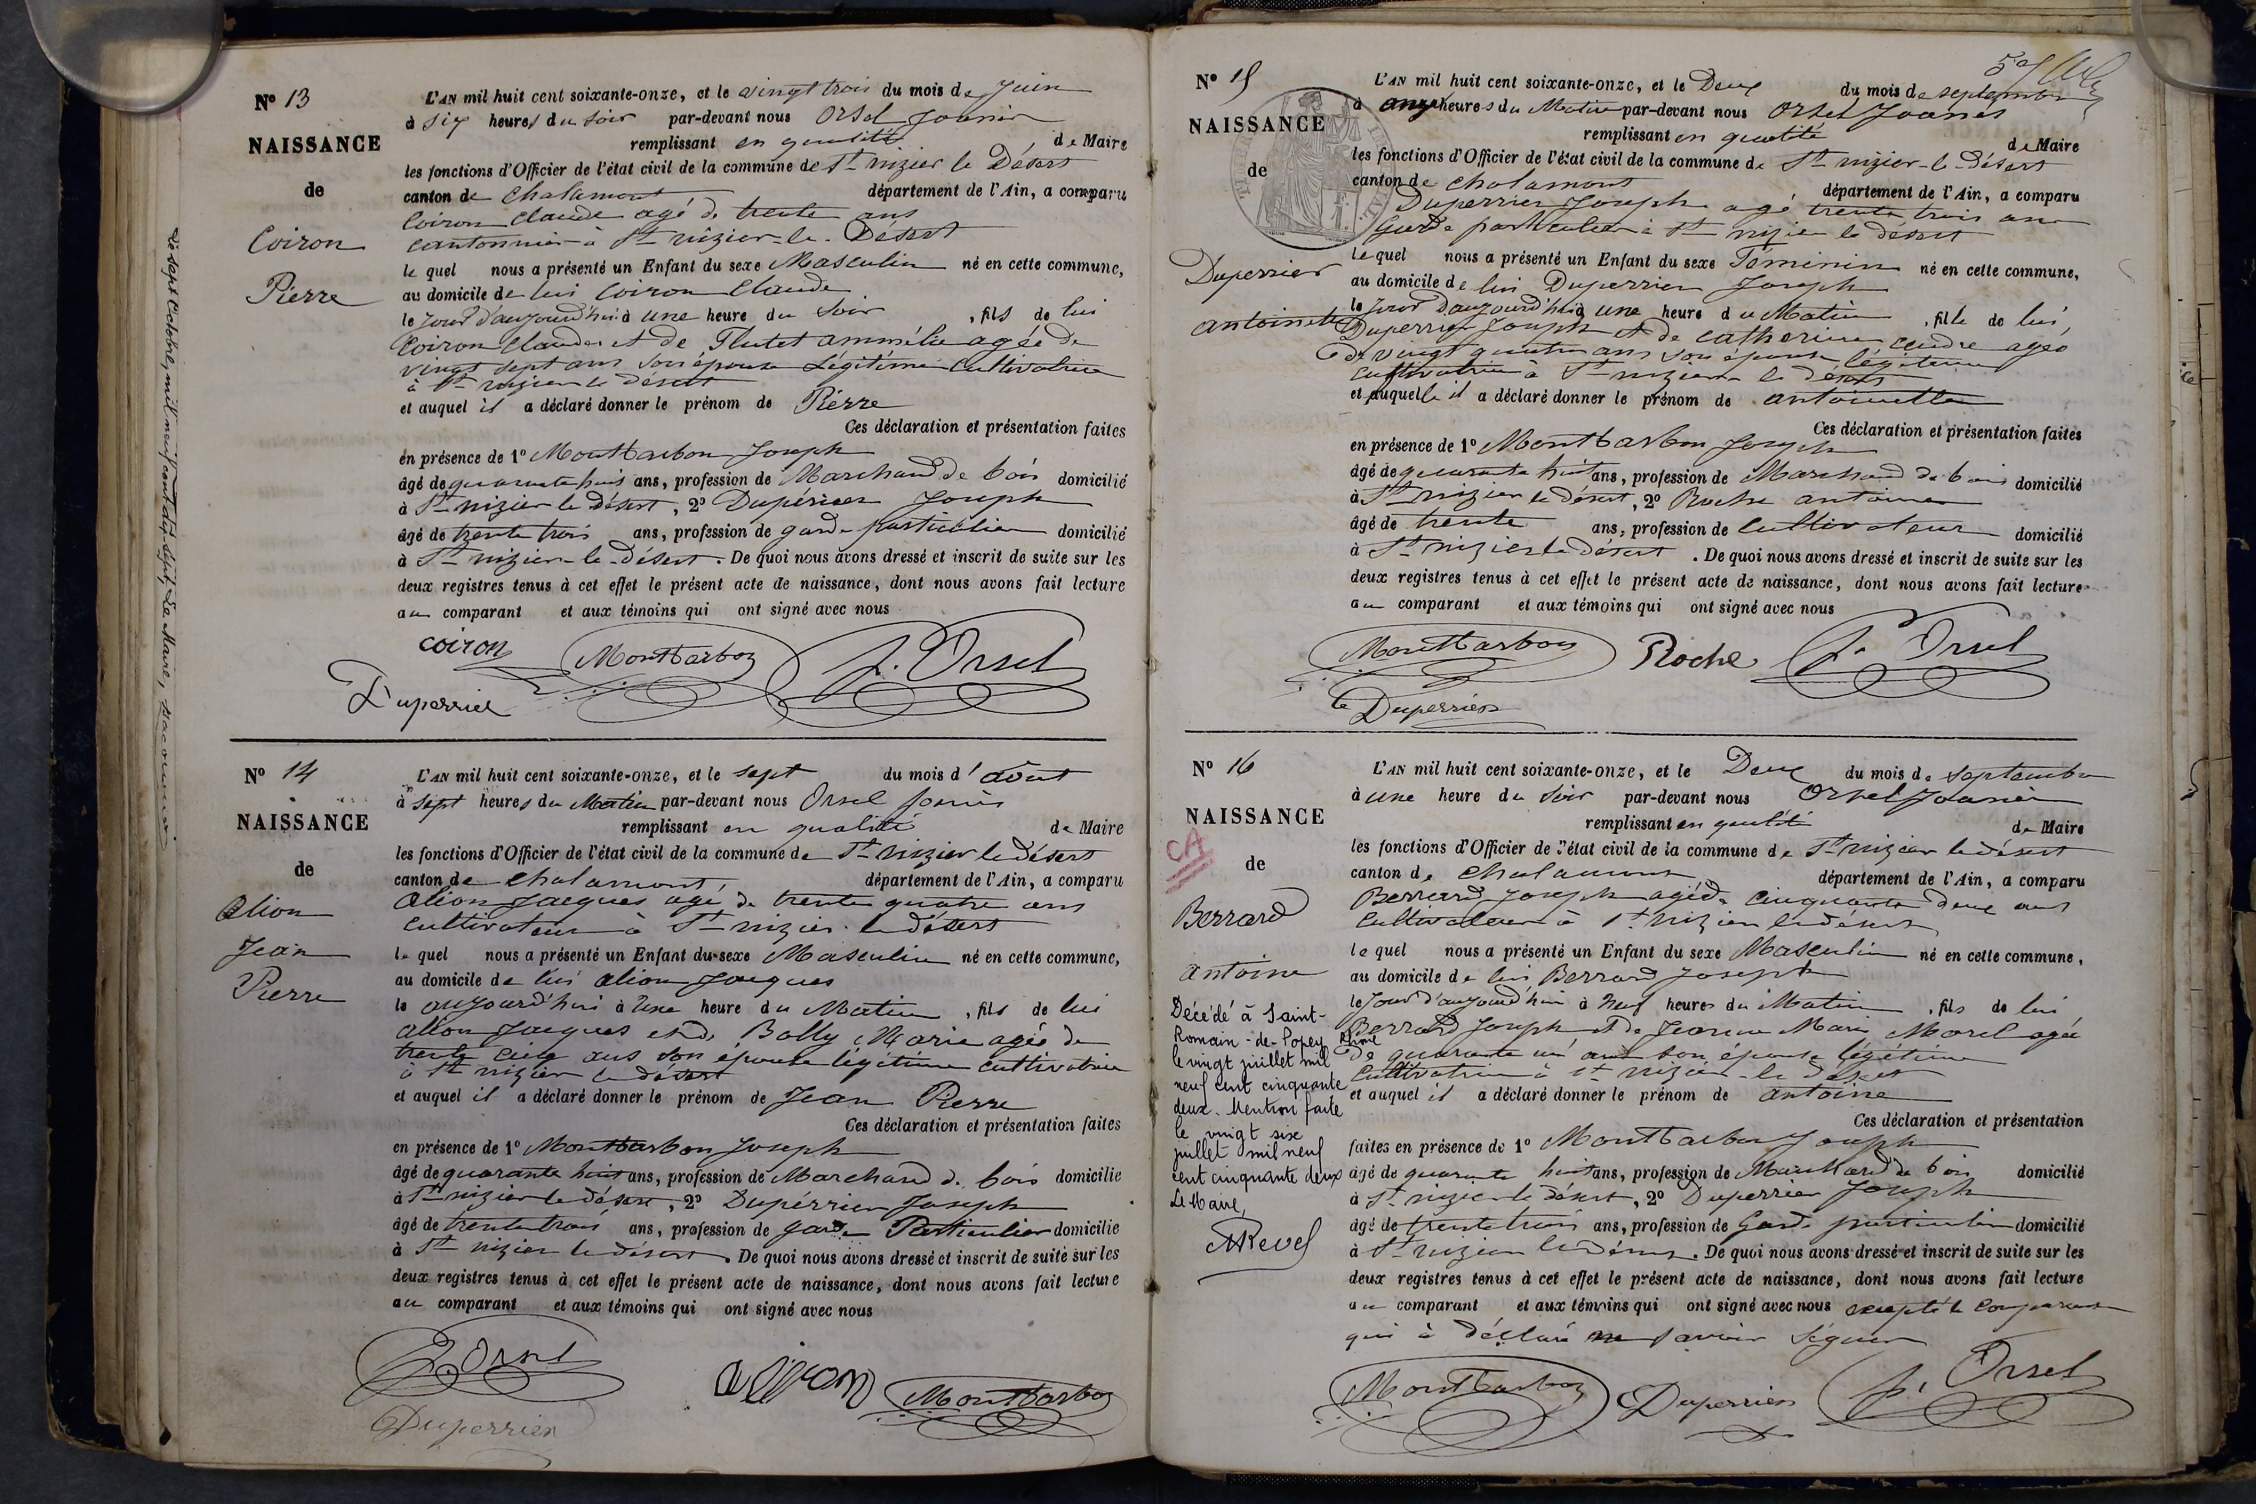 N° 13
NAISSANCE
de
Coiron
Pierre
L'AN mil huit cent soixante-onze, et le vingt trois du mois de Juin
à six heures du soir par-devant nous Orsel Joanin
remplissant en qualité de Maire
les fonctions d'Officier de l'état civil de la commune de St nizier le Désert
canton de Chalamont département de l'Ain, a comparu
Coiron Claude agé de trente ans
cantonnier à St nizier-le-Désert
le quel nous a présenté un Enfant du sexe Masculin né en cette commune,
au domicile de lui Coiron Claude
le jour d'aujourd'hui à une heure du soir, fils de lui
Coiron Claude et de Flutet ammélie agée de
vingt sept ans son épouse Légitime Cultivatrice
à St nizier le désert
et auquel il a déclaré donner le prénom de Piérre
Ces déclaration et présentation faites
en présence de 1° Montbarbon Joseph
âgé de quarante huit ans, profession de Marchand de bois domicilié
à St nizier le désert, 2° Dupérier Joseph
âgé de trente trois ans, profession de garde particulier domicilié
à St nizier-le-désert. De quoi nous avons dressé et inscrit de suite sur les
deux registres tenus à cet effet le présent acte de naissance, dont nous avons fait lecture
au comparant et aux témoins qui ont signé avec nous
coiron Montbarbon J. Orsel
Duperrier
N° 14
NAISSANCE
de
Alion
Jean
Pierre
L'AN mil huit cent soixante-onze, et le sept du mois d'août
à sept heures du Matin par-devant nous Orsel Joanin
remplissant en qualité de Maire
les fonctions d'Officier de l'état civil de la commune de St nizier le Désert
canton de Chalamont, département de l'Ain, a comparu
Alion Jacques agé de trente quatre ans
cultivateur à St nizier le désert
le quel nous a présenté un Enfant du sexe Masculin né en cette commune,
au domicile de lui alion Jacques
le aujourd'hui à une heure du Matin, fils de lui
alion Jacques et de Bolly Marie agée de
trente cinq ans son épouse légitime cultivatrice
à St nizier le désert
et auquel il a déclaré donner le prénom de Jean Pierre
Ces déclaration et présentation faites
en présence de 1° Montbarbon Joseph
âgé de quarante huit ans, profession de Marchand de bois domicilié
à St nizier le désert, 2° Dupérrier Joseph
âgé de trente trois ans, profession de garde Particulier domicilié
à St nizier le désert. De quoi nous avons dressé et inscrit de suite sur les
deux registres tenus à cet effet le présent acte de naissance, dont nous avons fait lecture
au comparant et aux témoins qui ont signé avec nous
J. Orsel alion Montbarbon
Duperrier
N° 15
NAISSANCE
de
Duperrier
antoinette
L'AN mil huit cent soixante-onze, et le Deux du mois de septembre
à onze heures du Matin par-devant nous Orsel Joanes
remplissant en qualité de Maire
les fonctions d'Officier de l'état civil de la commune de St nizier-le-Désert
canton de Chalamont département de l'Ain, a comparu
Duperrier Joseph agé trente trois ans
Garde particulier à St nizier le désert
le quel nous a présenté un Enfant du sexe Féminin né en cette commune,
au domicile de lui Duperrier Joseph
le jour d'aujourd'hui à une heure du Matin, fille de lui,
Duperrier Joseph et de Catherine agée
de vingt quatre ans son épouse légitime
cultivatrice à St nizier le désert
et auquelle il a déclaré donner le prénom de antoinette
Ces déclaration et présentation faites
en présence de 1° Montbarbon Joseph
âgé de quarante huit ans, profession de Marchand de bois domicilié
à St nizier le désert, 2° Roche antoine
âgé de trente ans, profession de Cultivateur domicilié
à St nizier le désert. De quoi nous avons dressé et inscrit de suite sur les
deux registres tenus à cet effet le présent acte de naissance, dont nous avons fait lecture
au comparant et aux témoins qui ont signé avec nous
Montbarbon Roche J. Orsel
Duperrier
N° 16
NAISSANCE
CA
de
Berrard
antoine
Décédé à Saint-
Romain-de-Popey Rhône
le vingt juillet mil
neuf cent cinquante
deux. Mention faite
le vingt six
juillet mil neuf
cent cinquante deux
Le Maire,
Revel
L'AN mil huit cent soixante-onze, et le Deux du mois de septembre
à une heure du soir par-devant nous Orsel Joanin
remplissant en qualité de Maire
les fonctions d'Officier de l'état civil de la commune de St nizier le désert
canton de Chalamont département de l'Ain, a comparu
Berrard Joseph agé de cinquante deux ans
Cultivateur à St nizier le désert
le quel nous a présenté un Enfant du sexe Masculin né en cette commune,
au domicile de lui Berrard Joseph
le jour d'aujourd'hui à neuf heures du Matin, fils de lui
Berrard Joseph et de Jeanne Marie Morel agée
de quarante un ans son épouse légitime
Cultivatrice à St nizier-le désert
et auquel il a déclaré donner le prénom de antoine
Ces déclaration et présentation
faites en présence de 1° Montbarbon Joseph
âgé de quarante huit ans, profession de Marchand de bois domicilié
à St nizier le désert, 2° Duperrier Joseph
âgé de trente trois ans, profession de Garde particulier domicilié
à St nizier le désert. De quoi nous avons dressé et inscrit de suite sur les
deux registres tenus à cet effet le présent acte de naissance, dont nous avons fait lecture
au comparant et aux témoins qui ont signé avec nous excepté le comparant
qui à déclaré ne savoir signer
Montbarbon Duperrier J. Orsel